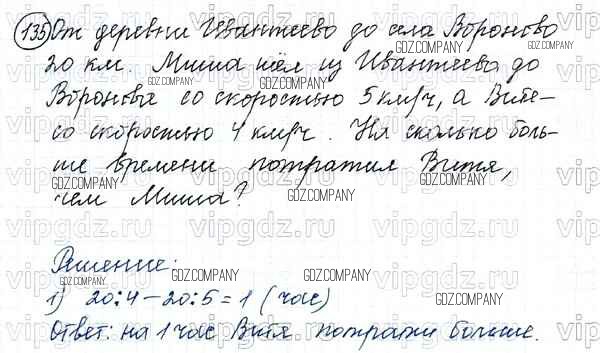 135 От деревни Ивантеево до села Вороново
20 км. Миша шёл из Ивантеева до
Воронова со скоростью 5 км/ч, а Витя -
со скоростью 4 км/ч. На сколько боль-
ше времени потратил Витя,
чем Миша?
Решение:
1) 20:4-20:5=1 (час)
Ответ: на 1 час Витя потратил больше.
GDZ.COMPANY
vipgdz.ru